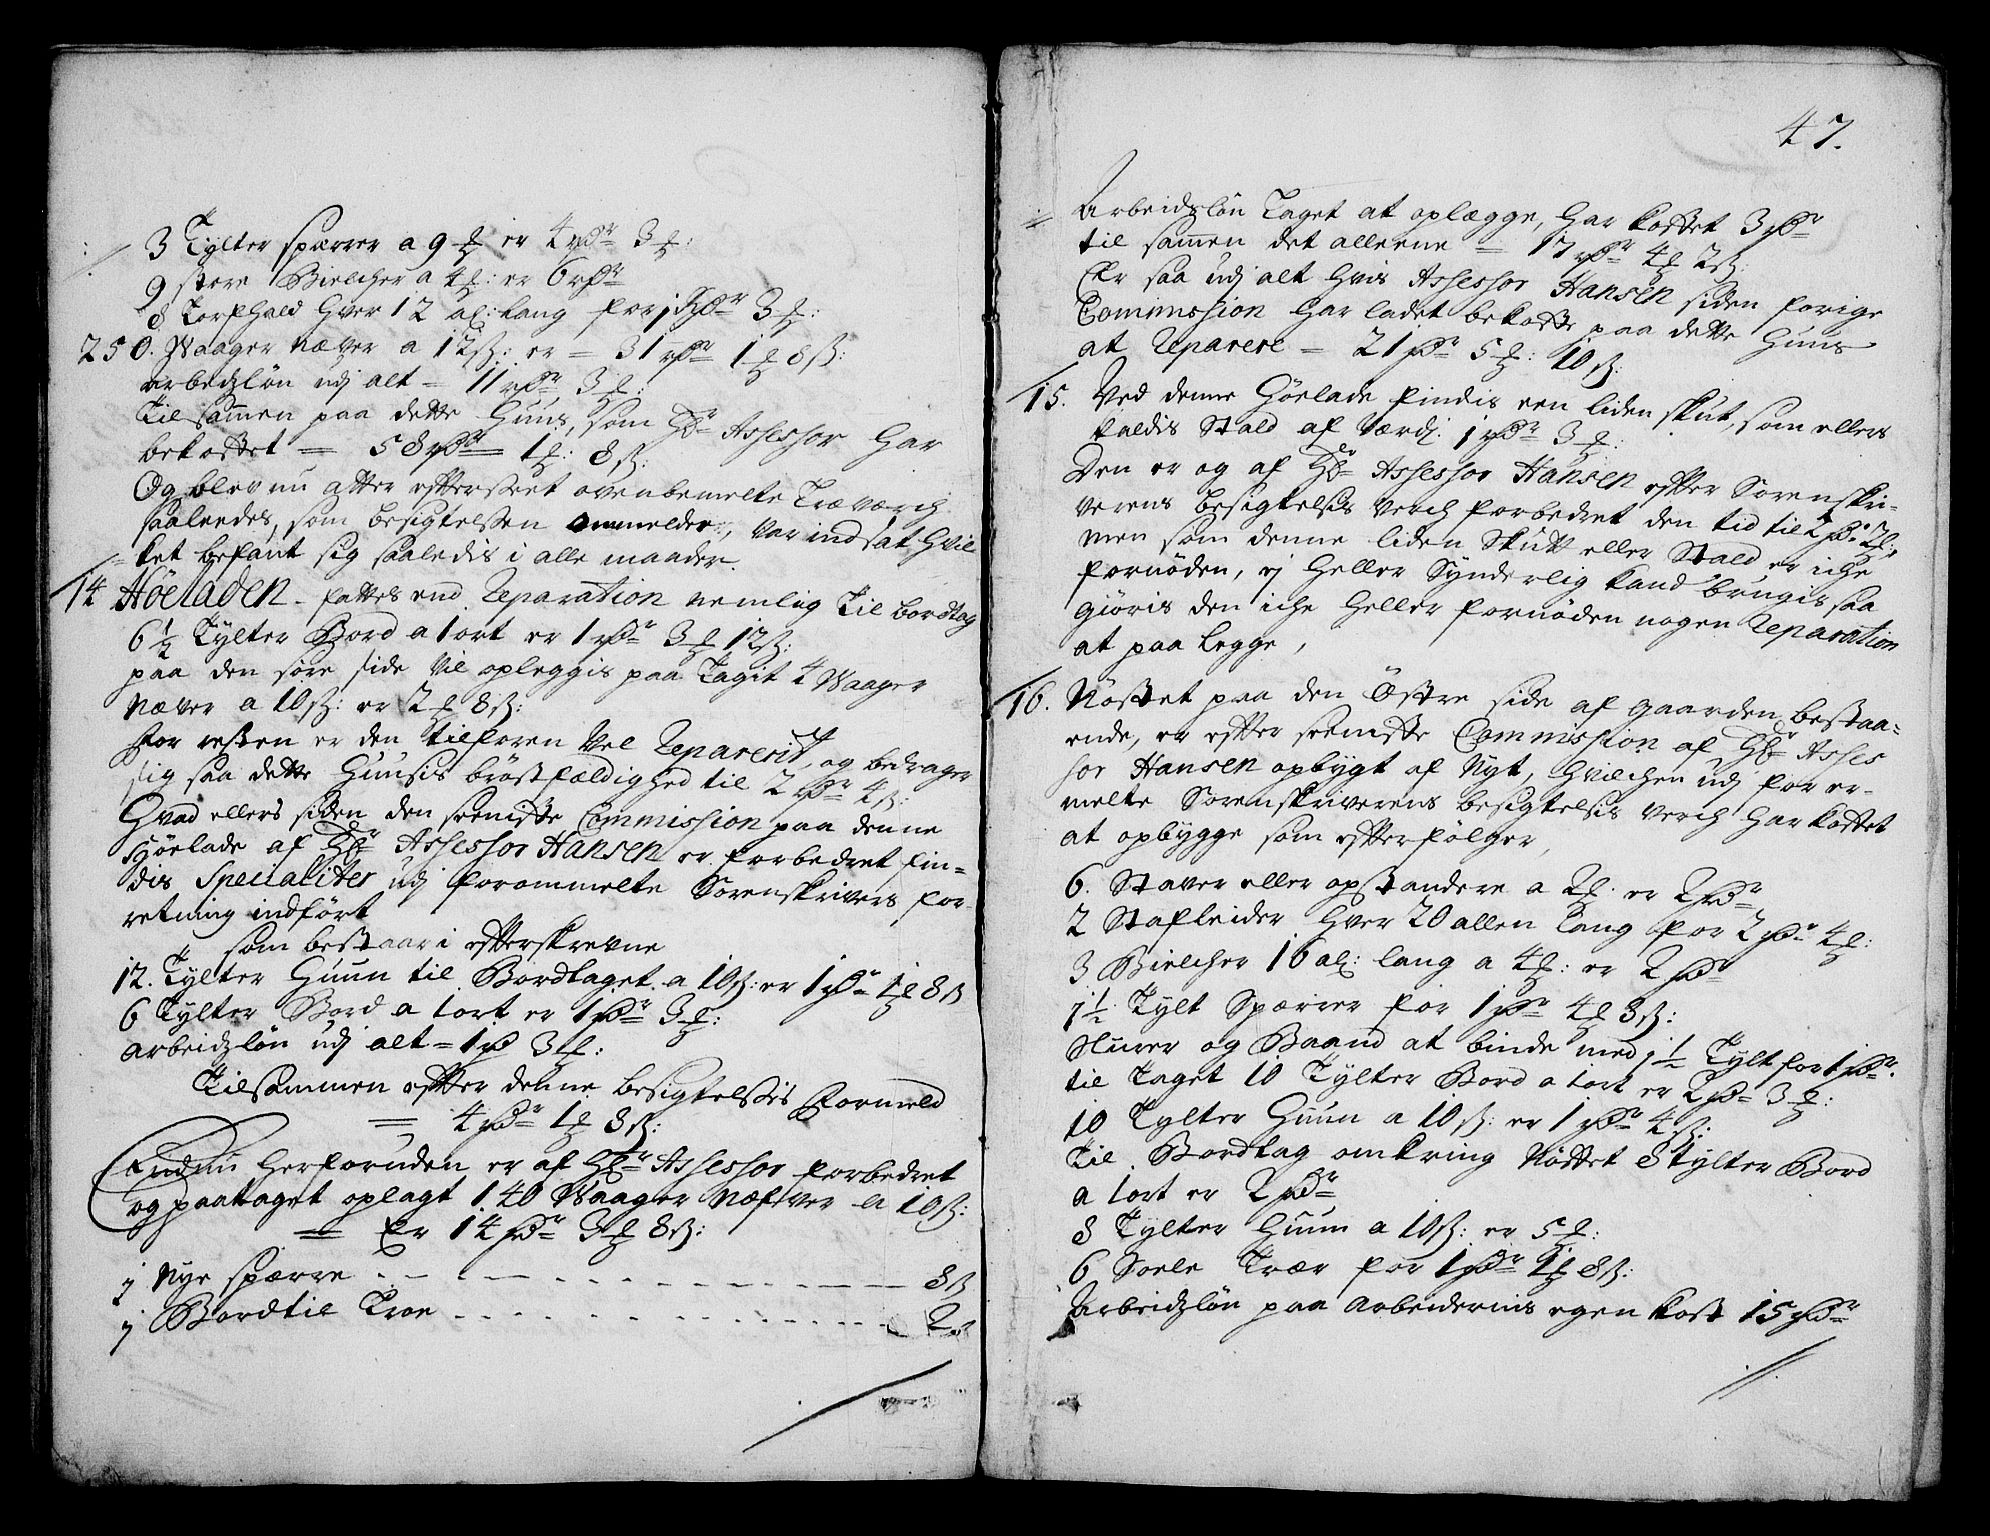 3 Tylter spærrer a 9 ℔ er 4 rdr 3 ℔:
9 store Bielcher a 4 ℔: er 6 rdr
8 Torfhald hver 12 al: lang for j rdr 3 ℔:
250. Waager Næver a 12 ß: er = 31 rdr 1 ℔ 8 ß:
arbedzløn udj alt = 11 rdr 3 ℔:
Til sammen paa dette Huus, som Hr Assessor har
bekostet = 58 rdr 1 ℔: 8 ß:
Og blev nu atter efterseet ovenbemelte Træverch
saaledes, som besigtelsen ommelder, var indsat, hvil
ket befant sig saaledis i alle maader.
14 Høeladen. fattes end Reparation nemlig til bordtag
6 ½ Tylter Bord a 1 ort er 1 rdr 3 ℔ 12 ß:
paa den søre side vil opleggis paa Taget 4 Waager
Næver a 10 ß: er 2 ℔ 8 ß:
for resten er den tilforen vel Reparerit, og bedrager
sig saa dette Huusis brøstfældighed til 2 rdr 4 ß:
Hvad ellers siden den seeniste Commission paa denne
Høelade af Hr Assessor Hansen er forbedret fin-
dis Specialiter udj forommelte Sorenskrivers for-
retning indført
som bestaar i efterskrevne
12. Tylter Huun til Bordtaget a 10 ß: er 1 rdr 1 ℔ 8 ß
6 Tylter Bord a 1 ort er 1 rdr 3 ℔:
Arbeidzløn udj alt = 1 rd 3 ℔:
Tilsammen efter denne besigtelsis Formeld
= 4 rdr 1 ℔ 8 ß:
Endnu herforuden er af Hr Assessor forbedret
og paataget oplagt 140 Waager Næfver a 10 ß:
= Er 14 rdr 3 ℔ 8 ß:
j Nye spærre - - - 8 ß
j Bord til Troe - - - 2 ß
47.
Arbeidzløn Taget at oplægge, har kostet 3 rdr
til sammen det alleene = 17 rdr 4 ℔ 2 ß:
Er saa udj alt hvis Assessor Hansen siden forige
Commission har ladet bekoste paa dette Huus
at Reparere = 21 rdr 5 ℔: 10 ß:
15. Ved denne Høelade findis een liden skut, som ellers
kaldis Stald af Værdj. 1 rdr 3 ℔:
Den er og af Hr Assessor Hansen efter Sorenskri-
verens besigtelsis Verch forbedret den tid til 2 rd: 2 ℔:,
men som denne liden Skutt eller Stald er iche
fornøden, ej heller Synderlig kand brugis saa
giøris den iche heller fornøden nogen Reparation
at paa legge,
16. Nøstet paa den Østre side af gaarden bestaa-
ende, er efter seeniste Commission af Hr Asses
sor Hansen opbygt af Nyt, hvilchen udj for er-
melte Sorenskriverens besigtelsis Verch har kostet
at opbygge som efterfølger,
6. Staver eller opstandere a 2 ℔: er 2 rdr
2 Stafleider hver 20 allen lang for 2 rdr 4 ℔:
3 Bielcher 16 al: lang a 4 ℔: er 2 rdr
1 ½ Tylt Spærrer for 1 rdr 4 ℔ 8 ß:
Slurer og Baand at binde med 1 ½ Tylt for 1 rdr.
til Taget 10 Tylter Bord a 1 ort er 2 rdr 3 ℔:
10 Tylter Huun a 10 ß: er 1 rdr 4 ß:
Til Bordtag omkring Nøstet 8 tylter Bord
a 1 ort er 2 rdr
8 Tylter Huun a 10 ß: er 5 ℔:
6 Soele Træer for 1 rdr 1 ℔ 8 ß:
Arbeidzløn paa Arbeidernis egen kost 15 rdr